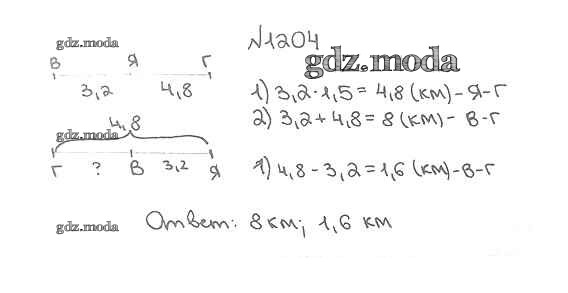 №1204
gdz.moda
gdz.moda
В Я Г
3,2 4,8
1) 3,2·1,5 = 4,8 (км) - Я-Г
2) 3,2 + 4,8 = 8 (км) - В-Г
4,8
gdz.moda
Г ? В 3,2 Я
1) 4,8 - 3,2 = 1,6 (км) - В-Г
gdz.moda
Ответ: 8 км; 1,6 км